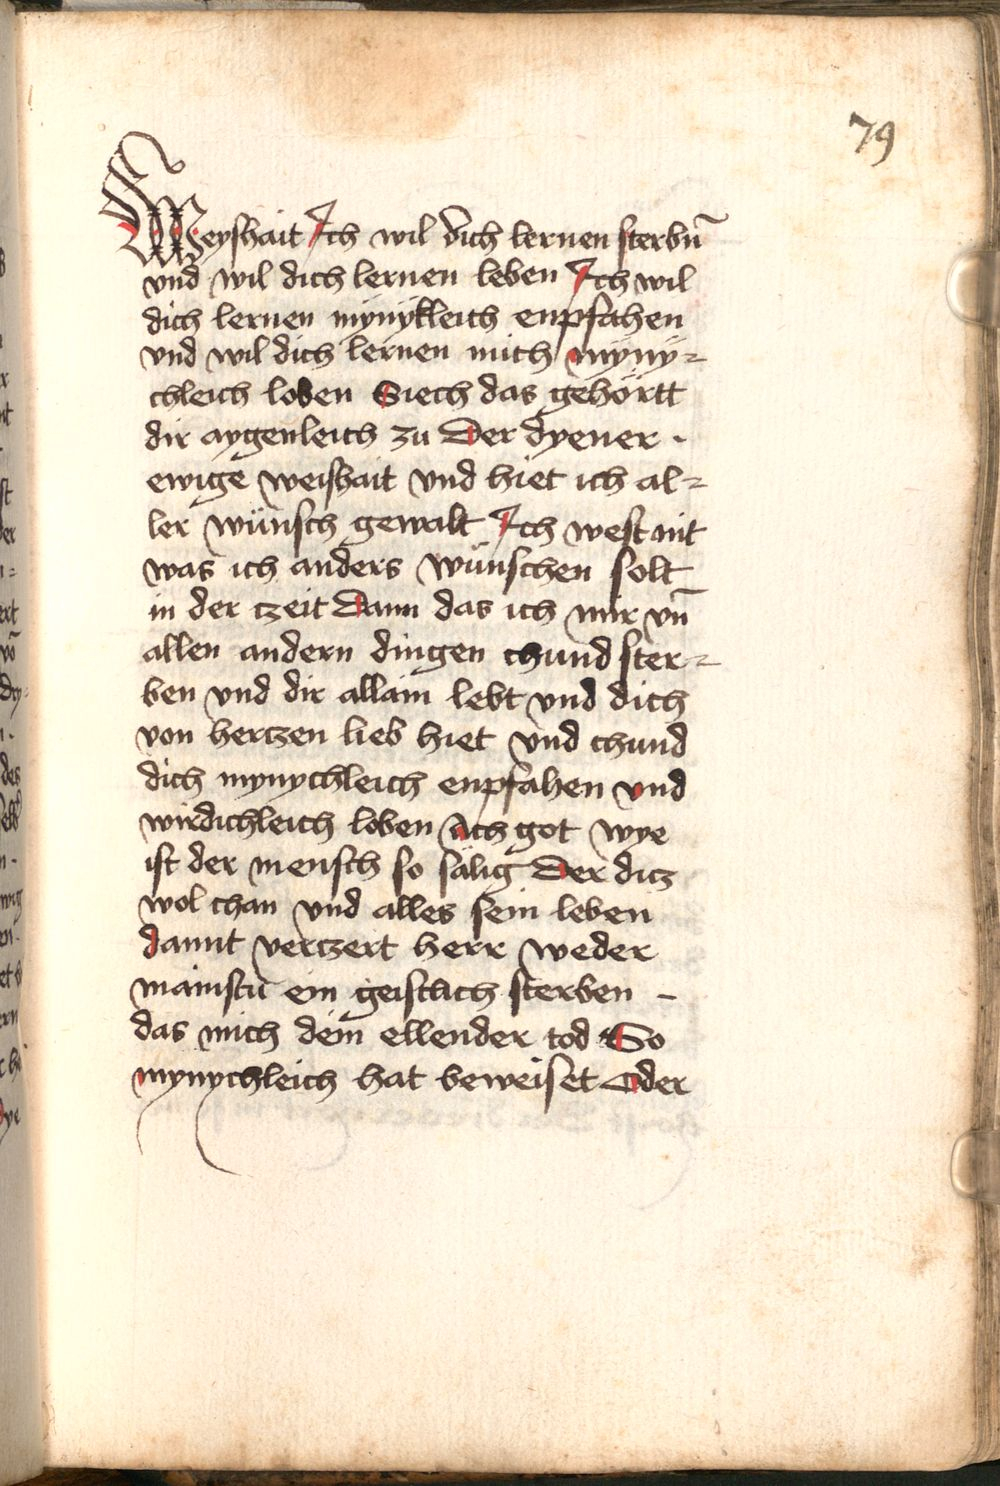 79
Weyshait Ich wil dich lernen sterbn̄
vnd wil dich lernen leben Ich wil
dich lernen mynykleich enpfahen
vnd wil dich lernen mich myny=
chleich loben Siech das gehörtt
dir aygenleich zu Der dyener .
ewige weishait vnd hiet ich al=
ler wünsch gewalt Ich west nit
was ich anders wünschen solt
in der czeit Dann das ich mir vn̄
allen andern dingen chund ster=
ben vnd dir allain lebt vnd dich
von herczen lieb hiet vnd chund
dich mynychleich enpfahen vnd
wirdichleich loben Ach got wye
ist der mensch so sälig Der dicz
wol chan vnd alles sein leben
damit verczert herr weder
mainstu ein geistlich sterben -
das mich dein ellender tod So
mynychleich hat beweiset Oder